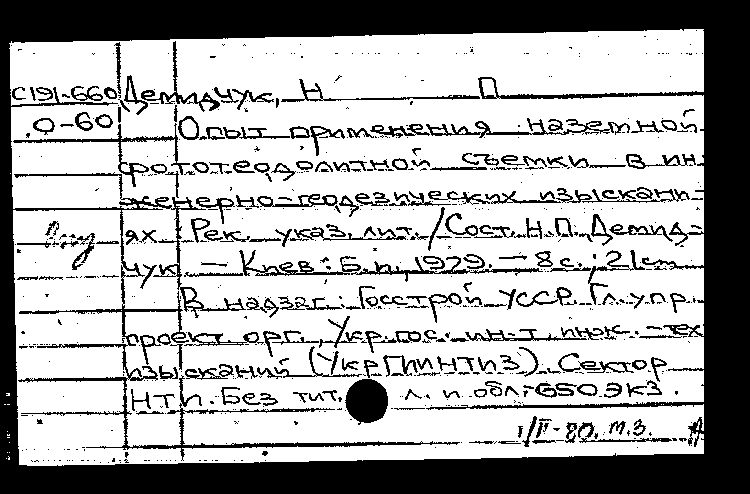 С191-660 Демидчук, Н П
О-60 Опыт применения наземной
фототеодолитной съемки в ин
женерно-геодезических изыскани-
ях : Рек. указ. лит. / Сост. Н.П. Демид-
чук. — Киев : Б. и., 1979. — 8 с. ; 21 cm
В надзаг.: Госстрой УССР. Гл. упр.
проект орг., Укр. гос. ин-т инж.-тех
изысканий (УкрГИИНТИЗ). Сектор
НТИ. Без тит. л. и обл. 650 экз.
1/II-80. м.з.